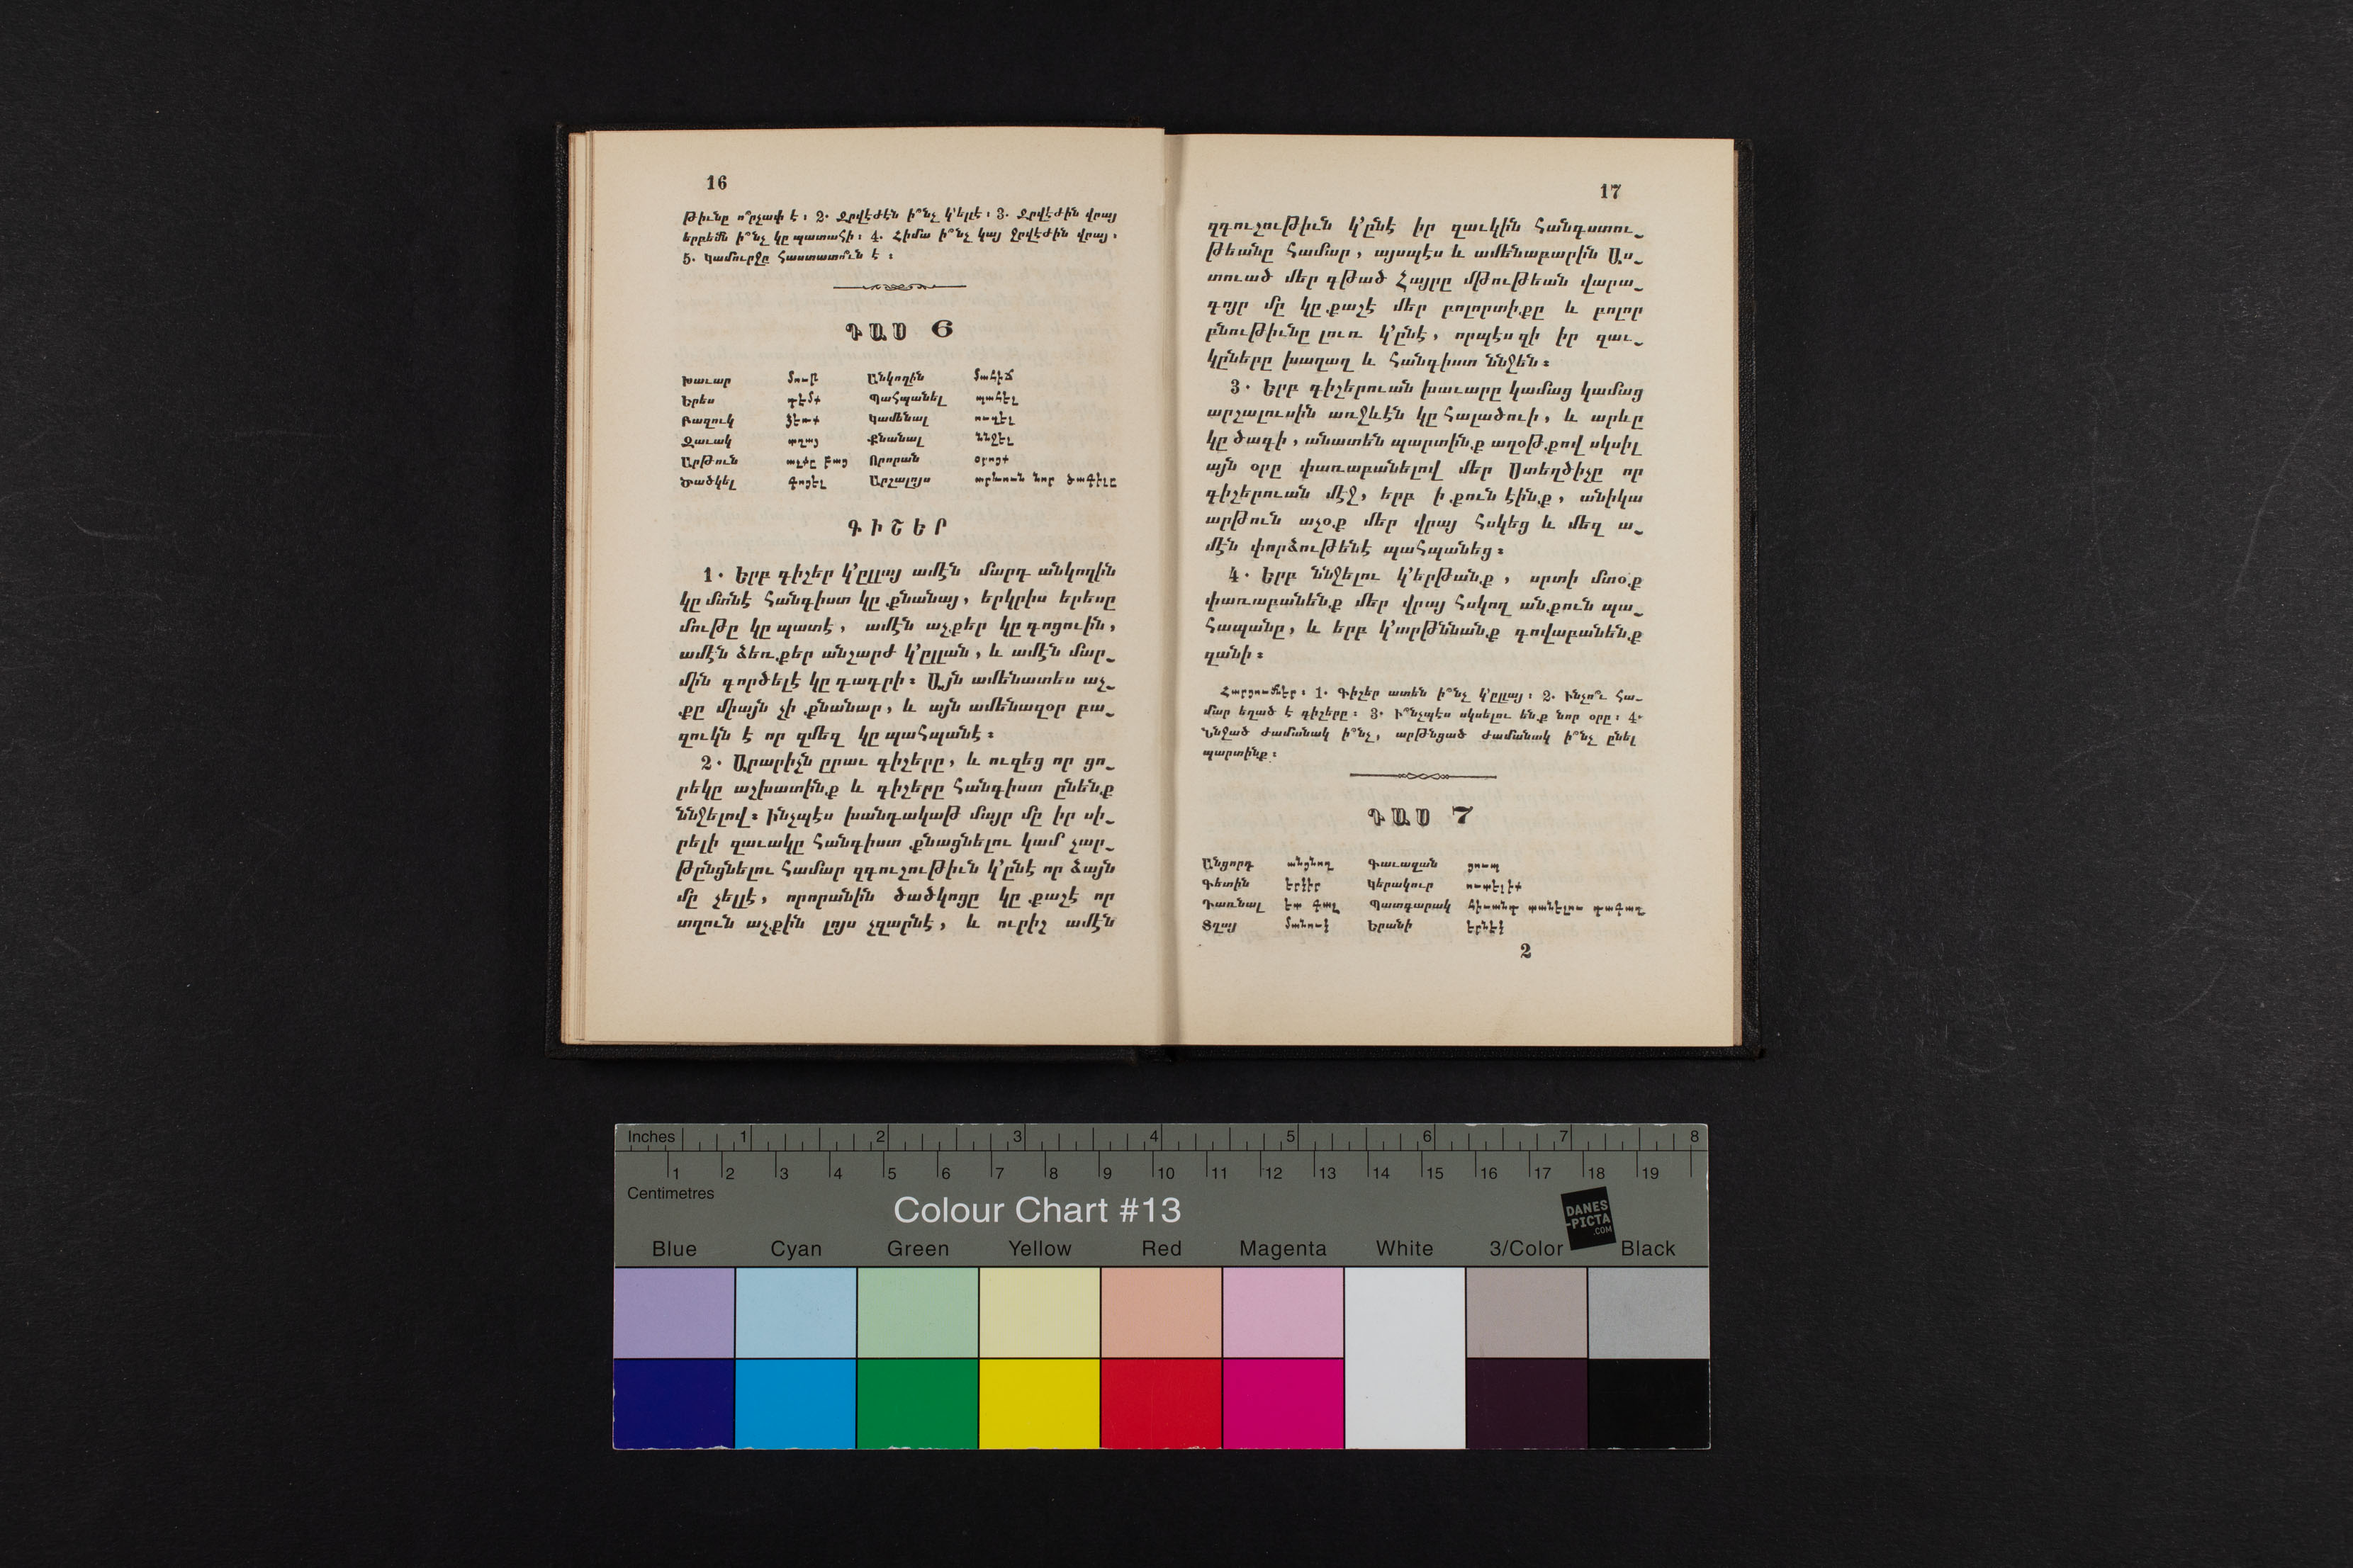 16
թիւնը ո՞րչափ է։ 2. Ջրվէժէն ի՞նչ կ'ելլէ։ 3. Ջրվէժին վրայ
երբեմն ի՞նչ կը պատահի։ 4. Հիմա ի՞նչ կայ Ջրվէժին վրայ.
5. Կամուրջը հաստատո՞ւն է ։
ԴԱՍ 6
Խաւար մութ Անկողին մահիճ
Երես դէմք Պահպանել պահել
Բազուկ ձեռք Կամենալ ուզել
Զաւակ տղայ Քնանալ ննջել
Արթուն աչքը բաց Որորան օրոցք
Ծածկել գոցել Արշալոյս արևուն նոր ծագիլը
ԳԻՇԵՐ
1. Երբ գիշեր կ'ըլլայ ամէն մարդ անկողին
կը մտնէ հանգիստ կը քնանայ, երկրիս երեսը
մութը կը պատէ, ամէն աչքեր կը գոցուին,
ամէն ձեռքեր անշարժ կ'ըլլան, և ամէն մար֊
մին գործելէ կը դադրի։ Այն ամենատես աչ֊
քը միայն չի քնանար, և այն ամենազօր բա֊
զուկն է որ զմեզ կը պահպանէ։
2. Արարիչն ըրաւ գիշերը, և ուզեց որ ցո֊
րեկը աշխատինք և գիշերը հանգիստ ընենք
ննջելով։ Ինչպէս խանդակաթ մայր մը իր սի֊
րելի զաւակը հանգիստ քնացնելու կամ չար֊
թընցնելու համար զգուշութիւն կ'ընէ որ ձայն
մը չելլէ, որորանին ծածկոցը կը քաշէ որ
տղուն աչքին լոյս չզարնէ, և ուրիշ ամէն
17
զգուշութիւն կ'ընէ իր զաւկին հանգստու֊
թեանը համար, այսպէս և ամենաբարին Աս֊
տուած մեր գթած Հայրը մթութեան վարա֊
գոյր մը կը քաշէ մեր բոլորտիքը և բոլոր
բնութիւնը լուռ կ'ընէ, որպէս զի իր զաւ֊
կըները խաղաղ և հանգիստ ննջեն։
3. Երբ գիշերուան խաւարը կամաց կամաց
արշալուսին առջևէն կը հալածուի, և արևը
կը ծագի, անատեն պարտինք աղօթքով սկսիլ
այն օրը փառաբանելով մեր Ստեղծիչը որ
գիշերուան մէջ, երբ ի քուն էինք, անիկա
արթուն աչօք մեր վրայ հսկեց և մեզ ա֊
մէն փորձութենէ պահպանեց։
4. Երբ ննջելու կ'երթանք, սրտի մտօք
փառաբանենք մեր վրայ հսկող անքուն պա֊
հապանը, և երբ կ'արթննանք գովաբանենք
զանի։
Հարցումներ։ 1. Գիշեր ատեն ի՞նչ կ'ըլլայ։ 2. Ինչո՞ւ հա֊
մար եղած է գիշերը։ 3. Ի՞նչպէս սկսելու ենք նոր օրը։ 4.
Ննջած ժամանակ ի՞նչ, արթնցած ժամանակ ի՞նչ ընել
պարտինք։
ԴԱՍ 7
Անցորդ անցնող Գաւազան ցուպ
Գետին երկիր Կերակուր ուտելիք
Դառնալ ետ գալ Պատգարակ հիւանդ տանելու դագաղ
Տղայ մանուկ Երանի երնէկ
2
Inches 1 2 3 4 5 6 7 8
1 2 3 4 5 6 7 8 9 10 11 12 13 14 15 16 17 18 19
Centimetres
Colour Chart #13
DANES
-PICTA
.COM
Blue Cyan Green Yellow Red Magenta White 3/Color Black